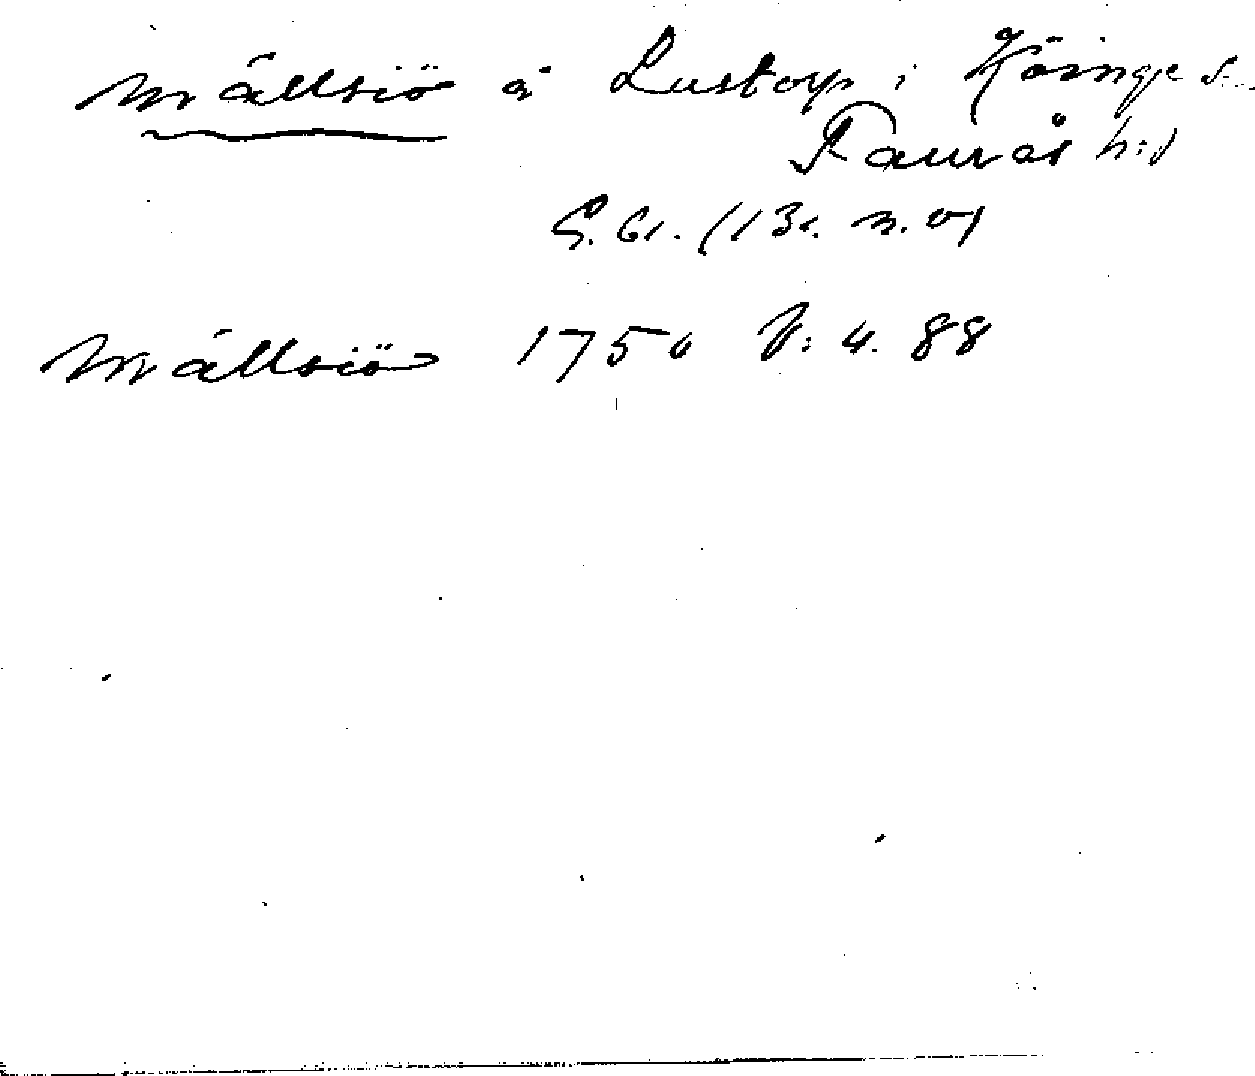 Mällsiö å Lustorp i Köinge s.
Faurås h:d
G. 61. (13c. n. o)
Mällsiö 1750 V: 4. 88